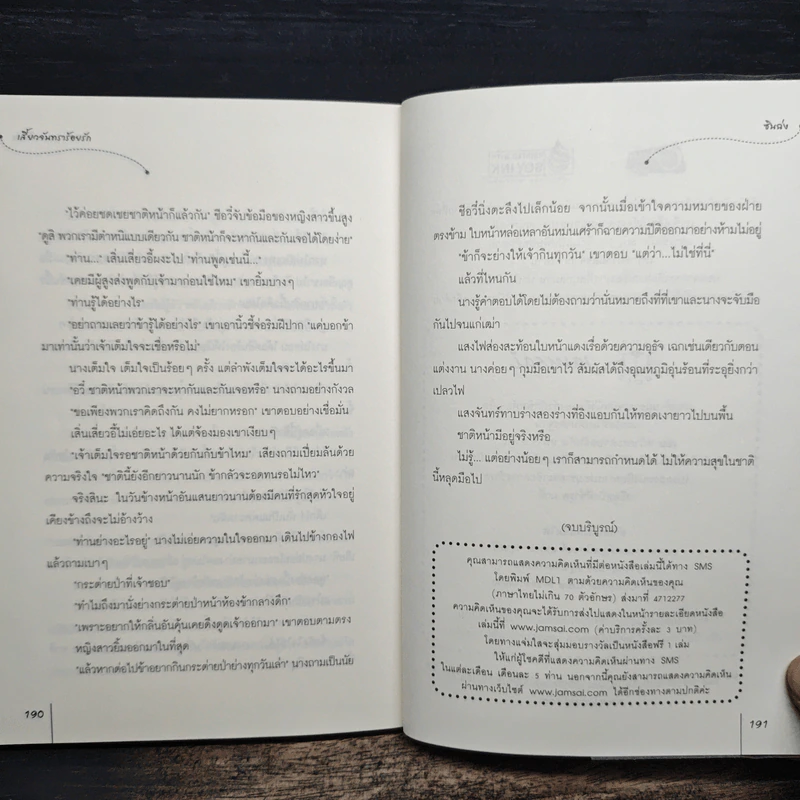 เสี้ยวจันทราร้อยรัก
"ไว้ค่อยชดเชยชาติหน้าก็แล้วกัน" ซือวี่จับข้อมือของหญิงสาวขึ้นสูง
"ดูสิ พวกเรามีตำหนิแบบเดียวกัน ชาติหน้าก็จะหากันและกันเจอได้โดยง่าย"
"ท่าน..." เสิ่นเสี่ยวอี้ผงะไป "ท่านพูดเช่นนี้..."
"เคยมีผู้สูงส่งพูดกับเจ้ามาก่อนใช่ไหม" เขายิ้มบางๆ
"ท่านรู้ได้อย่างไร"
"อย่าถามเลยว่าข้ารู้ได้อย่างไร" เขาเอานิ้วชี้จ่อริมฝีปาก "แค่บอกข้า
มาเท่านั้นว่าเจ้าเต็มใจจะเชื่อหรือไม่"
นางเต็มใจ เต็มใจเป็นร้อยๆ ครั้ง แต่ลำพังเต็มใจจะได้อะไรขึ้นมา
"อวี่ ชาติหน้าพวกเราจะหากันและกันเจอหรือ" นางถามอย่างกังวล
"ขอเพียงพวกเราคิดถึงกัน คงไม่ยากหรอก" เขาตอบอย่างเชื่อมั่น
เสิ่นเสี่ยวอี้ไม่เอ่ยอะไร ได้แต่จ้องมองเขาเงียบๆ
"เจ้าเต็มใจรอชาติหน้าด้วยกันกับข้าไหม" เสียงถามเปี่ยมล้นด้วย
ความจริงใจ "ชาตินี้ยังอีกยาวนานนัก ข้ากลัวจะอดทนรอไม่ไหว"
จริงสินะ ในวันข้างหน้าอันแสนยาวนานต้องมีคนที่รักสุดหัวใจอยู่
เคียงข้างถึงจะไม่อ้างว้าง
"ท่านย่างอะไรอยู่" นางไม่เอ่ยความในใจออกมา เดินไปข้างกองไฟ
แล้วถามเบาๆ
"กระต่ายป่าที่เจ้าชอบ"
"ทำไมถึงมานั่งย่างกระต่ายป่าหน้าห้องข้ากลางดึก"
"เพราะอยากให้กลิ่นอันคุ้นเคยดึงดูดเจ้าออกมา" เขาตอบตามตรง
หญิงสาวยิ้มออกมาในที่สุด
"แล้วหากต่อไปข้าอยากกินกระต่ายป่าย่างทุกวันเล่า" นางถามเป็นนัย
190
ซินฉง
ซือวี่นิ่งตะลึงไปเล็กน้อย จากนั้นเมื่อเข้าใจความหมายของฝ่าย
ตรงข้าม ใบหน้าหล่อเหลาอันหม่นเศร้าก็ฉายความปีติออกมาอย่างห้ามไม่อยู่
"ข้าก็จะย่างให้เจ้ากินทุกวัน" เขาตอบ "แต่ว่า...ไม่ใช่ที่นี่"
แล้วที่ไหนกัน
นางรู้คำตอบได้โดยไม่ต้องถามว่านั่นหมายถึงที่ที่เขาและนางจะจับมือ
กันไปจนแก่เฒ่า
แสงไฟส่องสะท้อนใบหน้าแดงเรื่อด้วยความอุธัจ เฉกเช่นเดียวกับตอน
แต่งงาน นางค่อยๆ กุมมือเขาไว้ สัมผัสได้ถึงอุณหภูมิอุ่นร้อนที่ระอุยิ่งกว่า
เปลวไฟ
แสงจันทร์ทาบร่างสองร่างที่อิงแอบกันให้ทอดเงายาวไปบนพื้น
ชาติหน้ามีอยู่จริงหรือ
ไม่รู้... แต่อย่างน้อยๆ เราก็สามารถกำหนดได้ ไม่ให้ความสุขในชาติ
นี้หลุดมือไป
(จบบริบูรณ์)
คุณสามารถแสดงความคิดเห็นที่มีต่อหนังสือเล่มนี้ได้ทาง SMS
โดยพิมพ์ MDL1 ตามด้วยความคิดเห็นของคุณ
(ภาษาไทยไม่เกิน 70 ตัวอักษร) ส่งมาที่ 4712277
ความคิดเห็นของคุณจะได้รับการส่งไปแสดงในหน้ารายละเอียดหนังสือ
เล่มนี้ที่ www.jamsai.com (ค่าบริการครั้งละ 3 บาท)
โดยทางแจ่มใสจะสุ่มมอบรางวัลเป็นหนังสือฟรี 1 เล่ม
ให้แก่ผู้โชคดีที่แสดงความคิดเห็นผ่านทาง SMS
ในแต่ละเดือน เดือนละ 5 ท่าน นอกจากนี้คุณยังสามารถแสดงความคิดเห็น
ผ่านทางเว็บไซต์ www.jamsai.com ได้อีกช่องทางตามปกติค่ะ
191